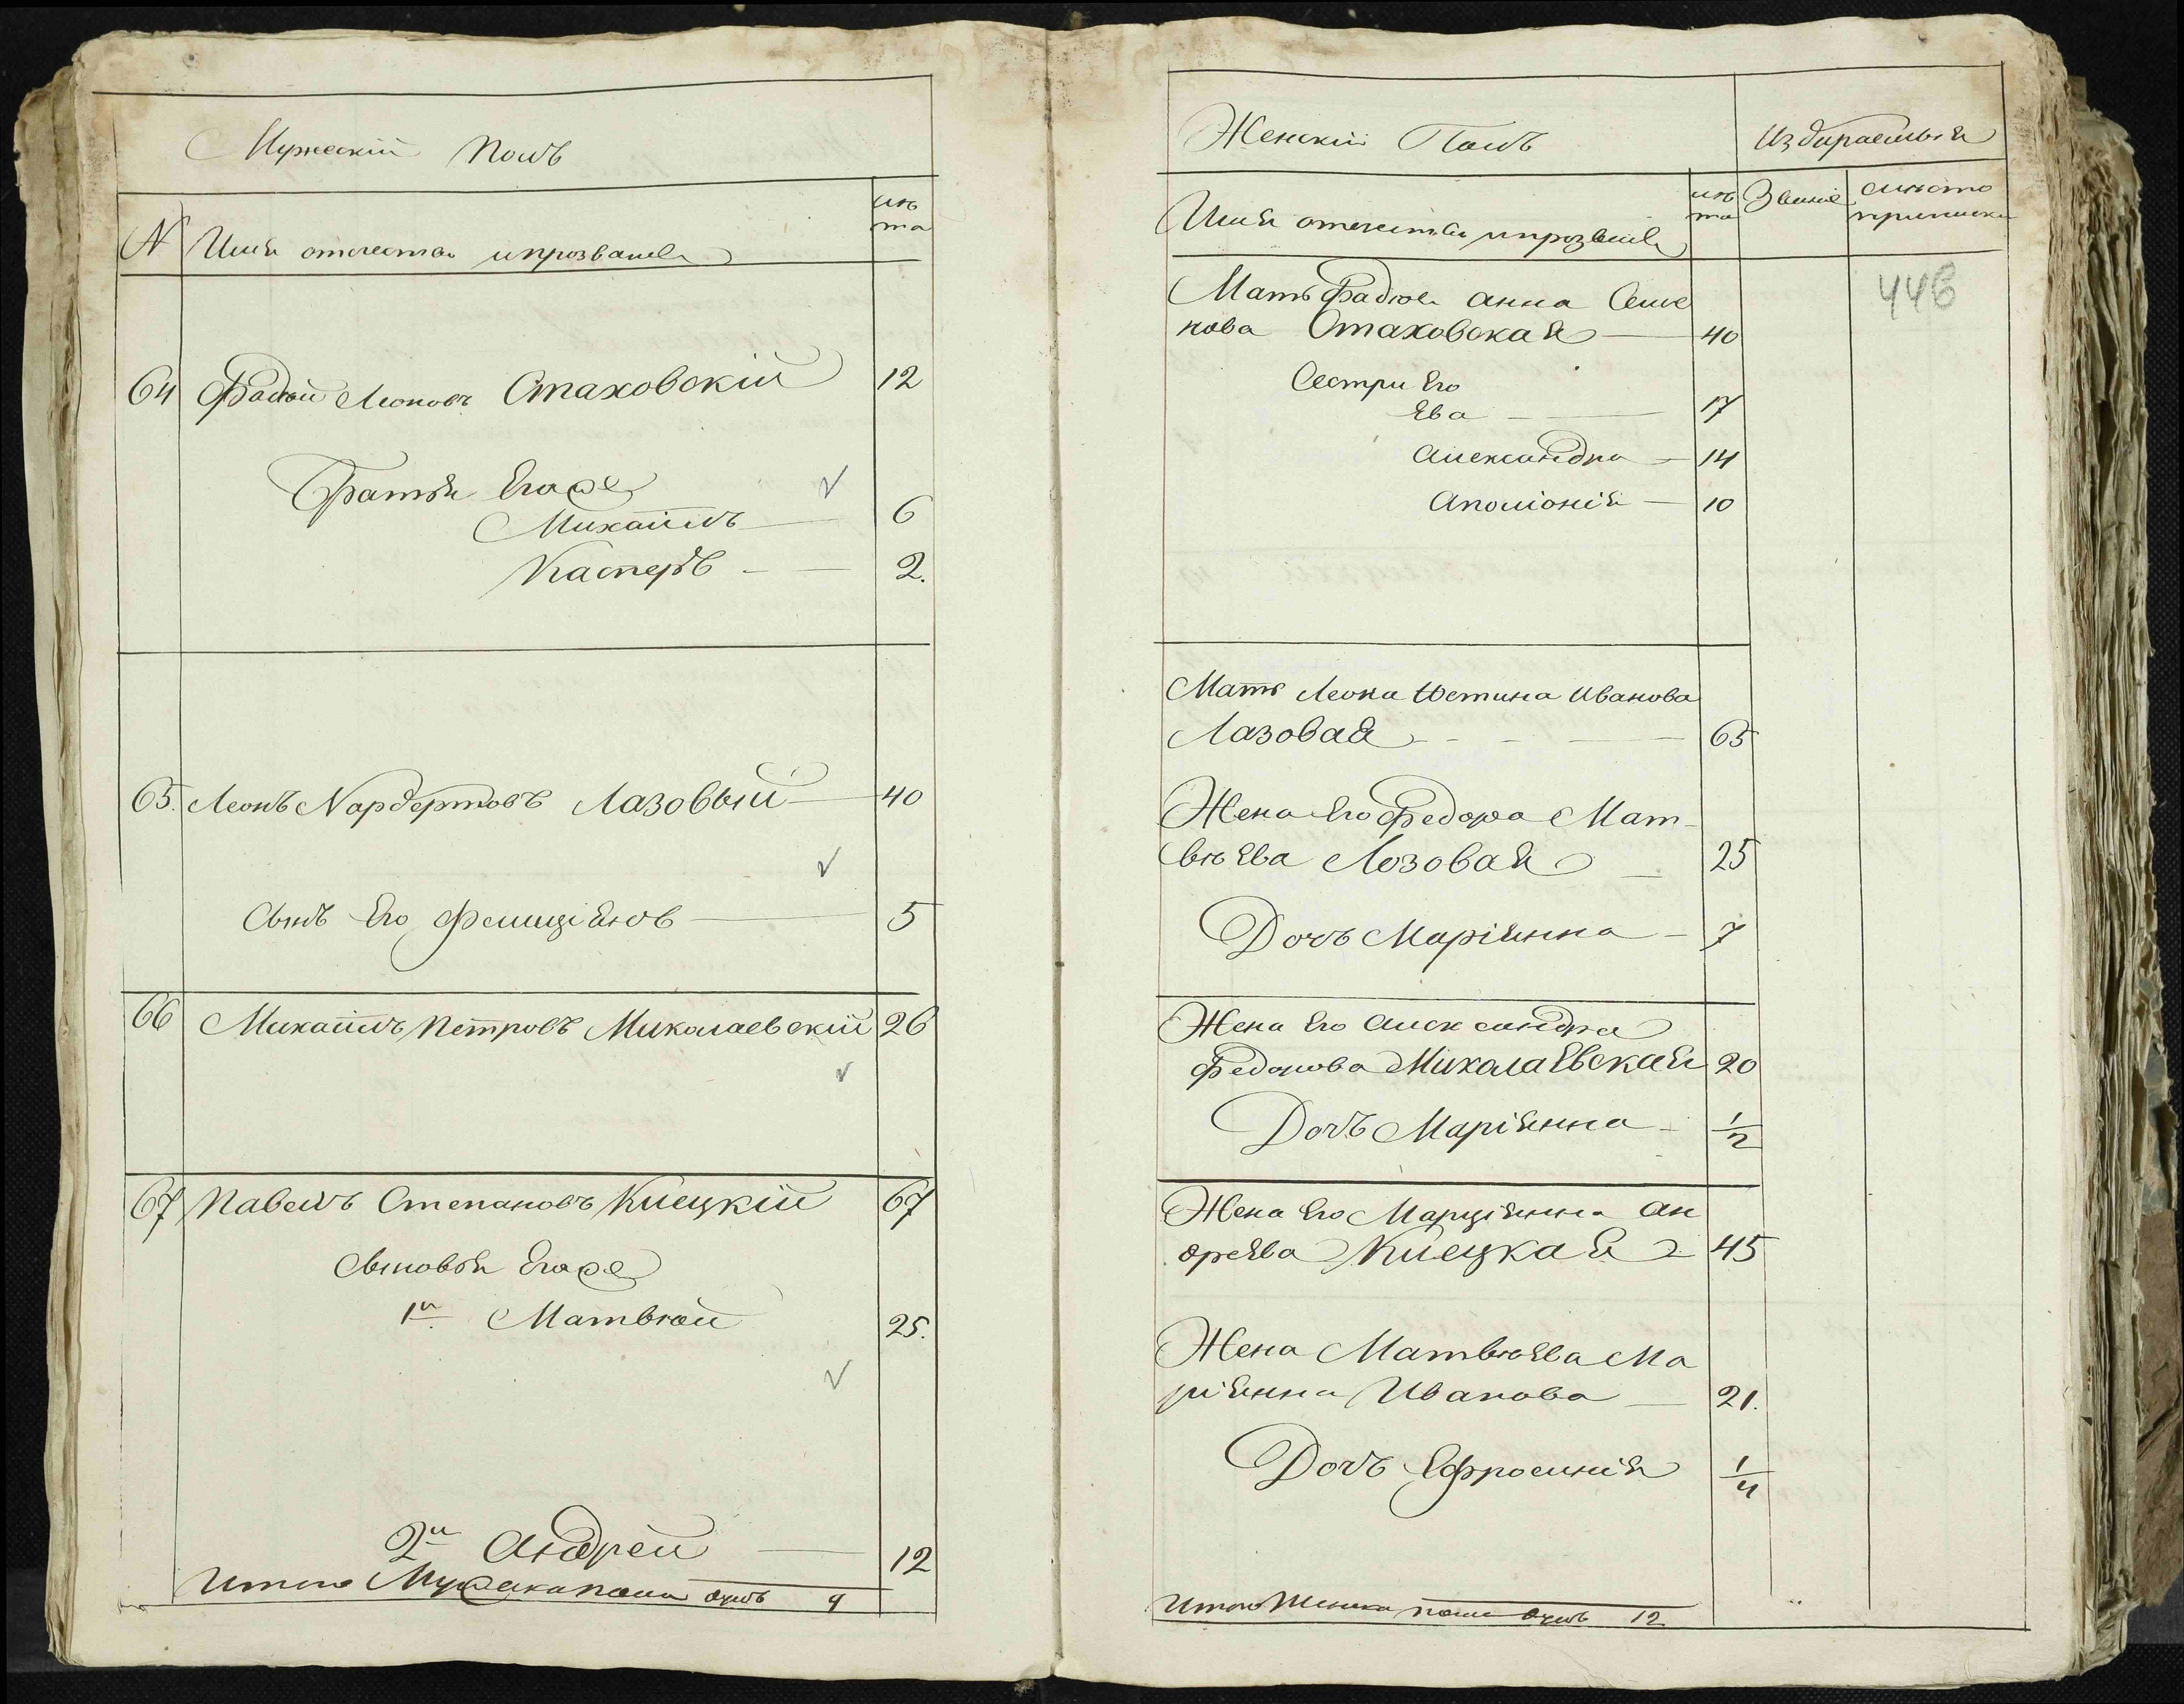 Мужескій Полъ
N Имя отчество и прозваніе лѣта
64 Фадѣй Леоновъ Стаховскій 12
Братья Его
Михаилъ 6
Касперъ 2.
65. Леонъ Норбертовъ Лазовый 40
Сынъ Его Фелиціянъ 5
66 Михаилъ Петровъ Миколаевскій 26
67 Павелъ Степановъ Киецкій 67
Сыновья Его
1й Матвѣй 25.
2й Андрей 12
Итого Мужеска пола душъ 9
Женскій Полъ Избираемыя
Имя отчество и прозваніе лѣта Званіе мѣсто приписки
446
Мать Фадѣя Анна Семе
нова Стаховская 40
Сестри Его
Ева 17
Александра 14
Аполіонія 10
Мать Леона Юстина Иванова
Лазовая 65
Жена Его Федора Мат-
вѣева Лозовая 25
Дочь Маріянна 7
Жена Его Александра
Федорова Миколаевская 20
Дочь Маріянна 1/2
Жена Его Марціянна Ан
дреева Киецкая 45
Жена Матвѣева Ма
ріянна Иванова 21.
Дочь Ефросинія 1/4
Итого Женска пола душъ 12